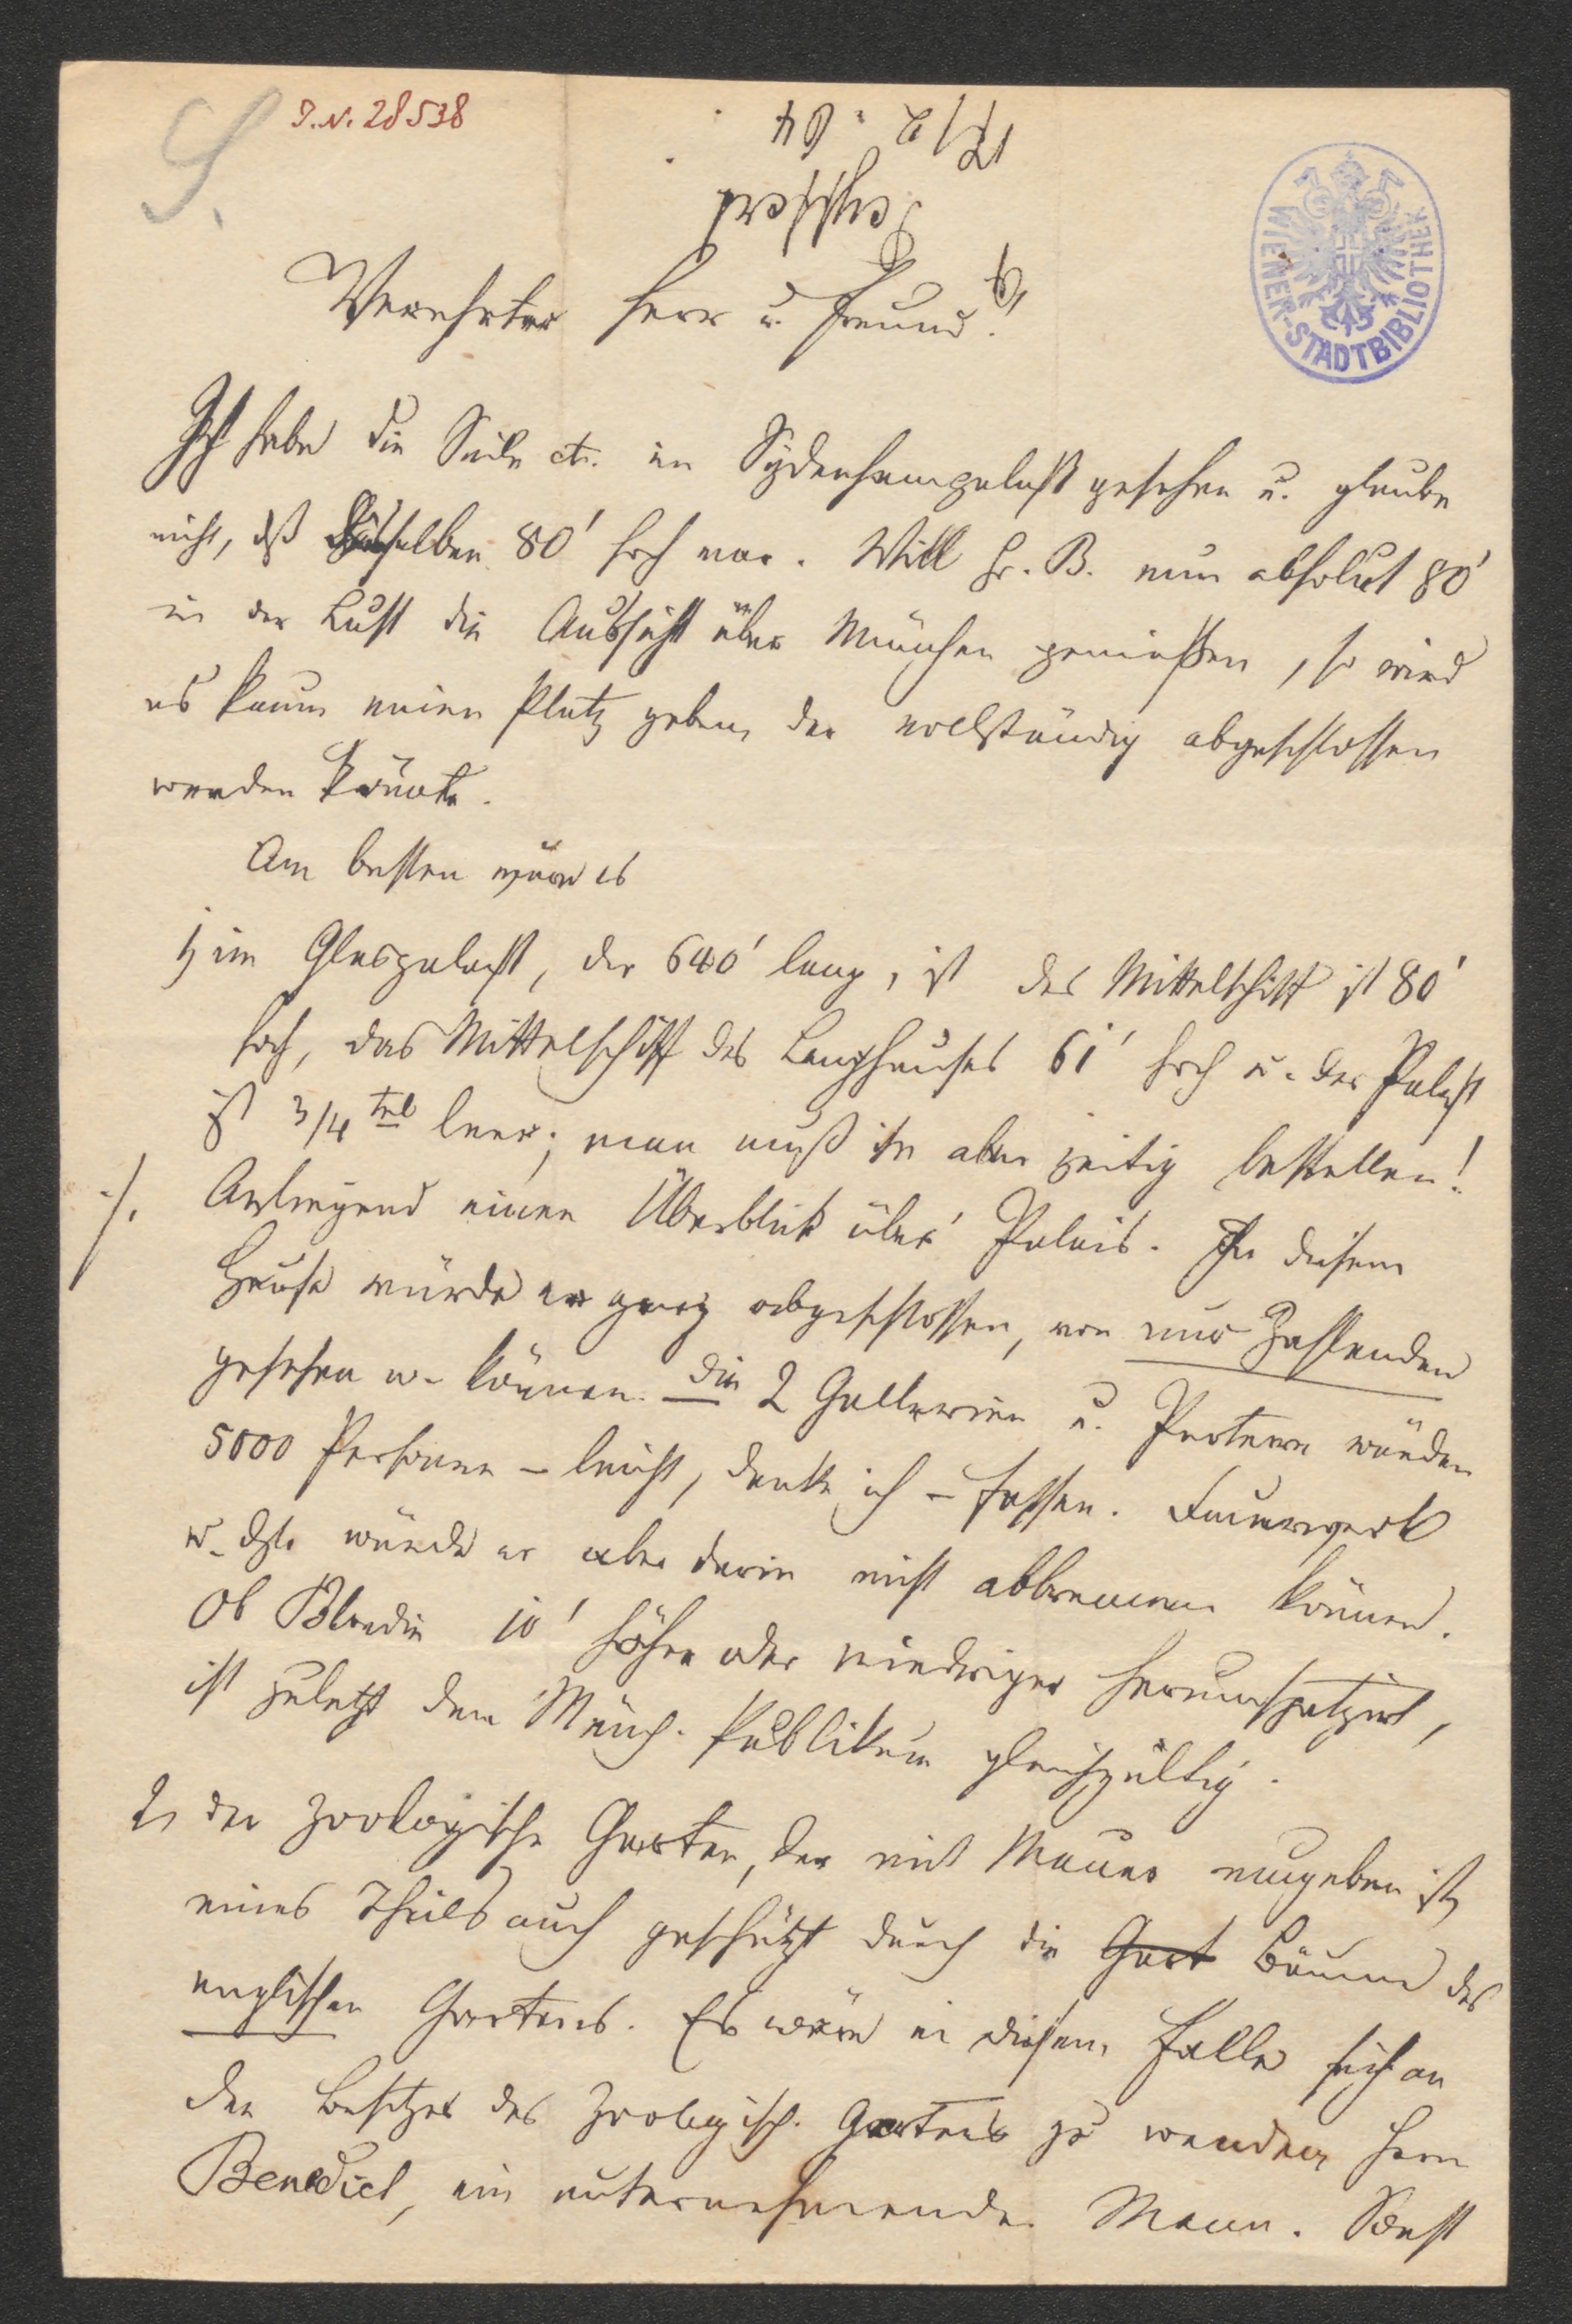 J.N. 28538
S.
17/2. 64
Peschel
WIENER-STADTBIBLIOTHEK
Verehrter Herr u. Freund!
Ich habe die Seile etc. im Sydenhampalast gesehen u. glaube
nicht, dß dasselben 80' hoch war. Will Hr. B. nun absolut 80'
in der Luft die Aussicht über München genießen, so wird
es kaum einen Platz geben, der vollständig abgeschlossen
werden könnte.
Am besten wäre es
1) im Glaspalast, der 640' lang, ist das Mittelschiff ist 80'
hoch, das Mittelschiff des Langhauses 61' hoch u. der Palast
ist 3/4 tel leer; man muß ihn aber zeitig bestellen!
./. Anliegend einen Überblick über Palais. In diesem
Hause würde er ganz abgeschlossen, von nur Zahlenden
gesehen w. können. Die 2 Gallerien u. Parterre würden
5000 Personen – leicht, denke ich – fassen. Feuerwerk
u. dgl. würde er aber darin nicht abbrennen können.
Ob Blondin 10' höher oder niedriger herumspatziert,
ist zuletzt dem Münch. Publikum gleichgültig.
2) der zoologische Garten, der mit Mauer umgeben ist,
eines Theils auch geschützt durch die Gart Bäume des
englischen Gartens. Es wäre in diesem Falle sich an
den Besitzer des zoologisch. Gartens zu wenden Herrn
Benedict, ein unternehmender Mann. Sonst